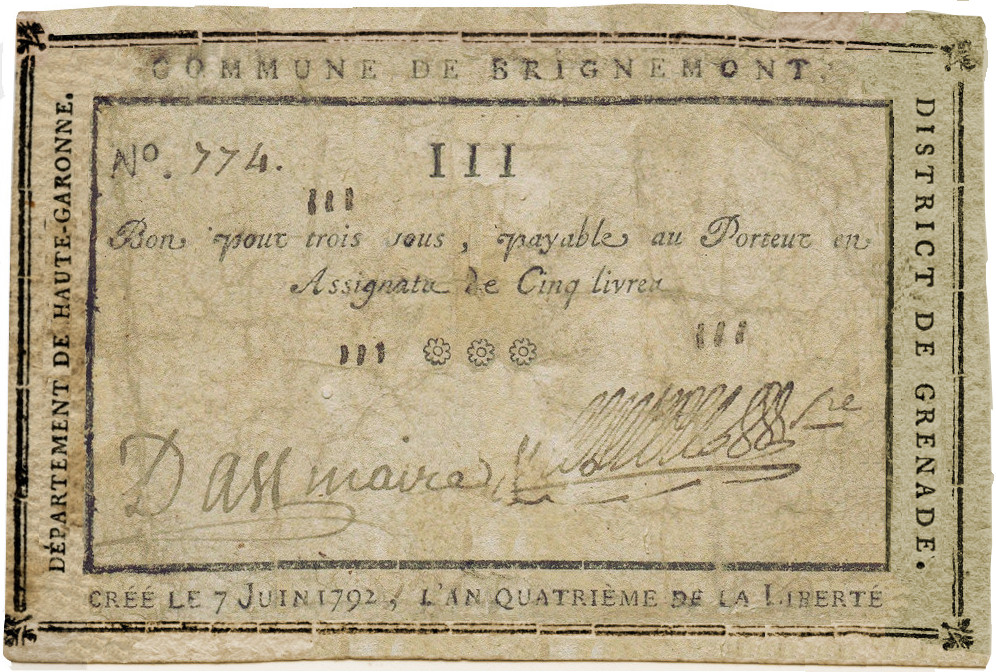 COMMUNE DE BRIGNEMONT.
DÉPARTEMENT DE HAUTE-GARONNE.
DISTRICT DE GRENADE.
No. 774.
III
III
Bon pour trois sous, payable au Porteur en
Assignats de Cinq livres
III
III
Dast maire
CRÉÉ LE 7 JUIN 1792, L'AN QUATRIÈME DE LA LIBERTÉ